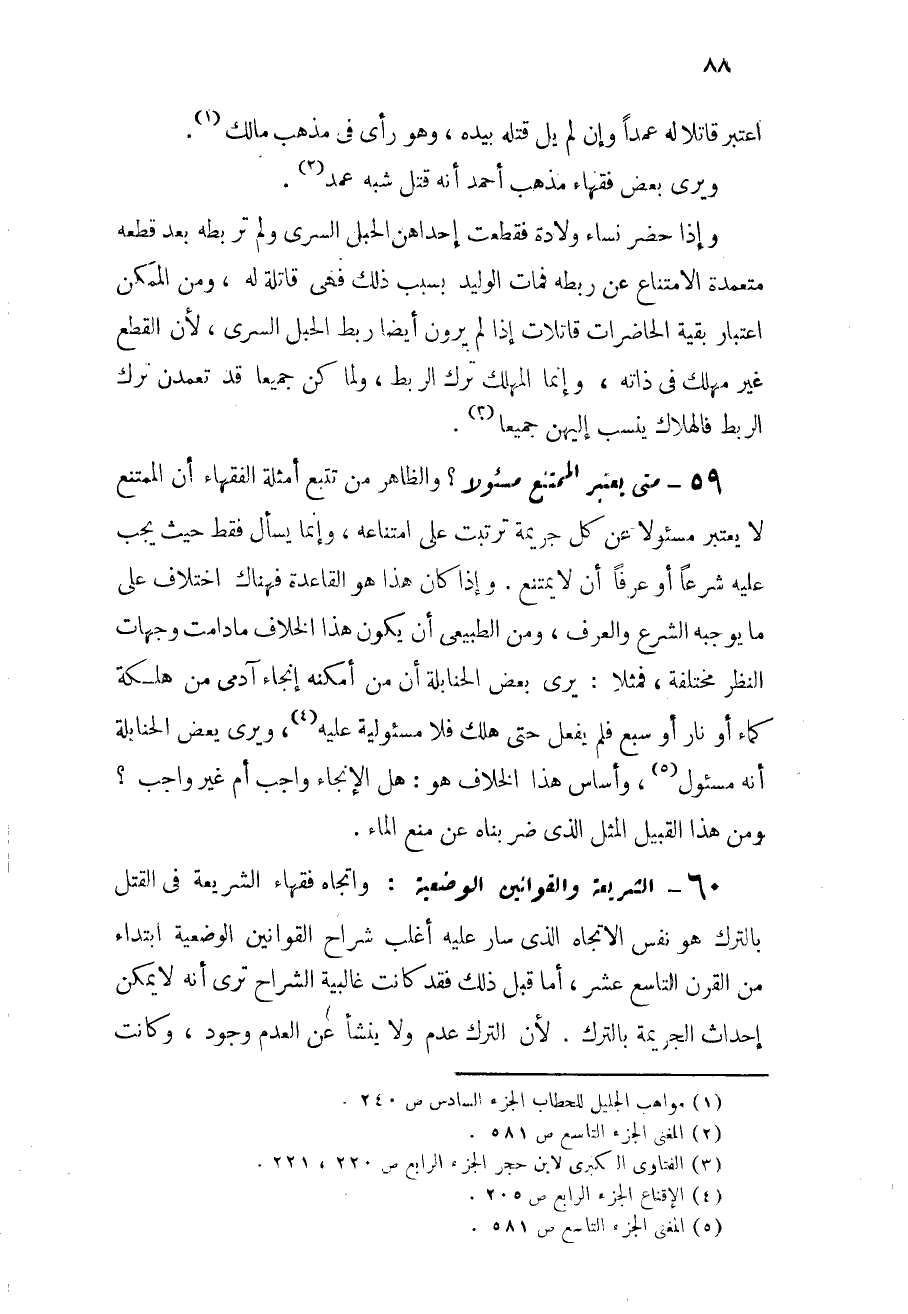 ٨٨
اعتبر قاتلا له عمداً وإن لم يل قتله بيده ، وهو رأى فى مذهب مالك (١) .
ويرى بعض فقهاء مذهب أحمد أنه قتل شبه عمد (٢) .
وإذا حضر نساء ولادة فقطعت إحداهن الحبل السرى ولم تربطه بعد قطعه
متعمدة الامتناع عن ربطه فمات الوليد بسبب ذلك فهى قاتلة له ، ومن الممكن
اعتبار بقية الحاضرات قاتلات إذا لم يرون أيضا ربط الحبل السرى ، لأن القطع
غير مهلك فى ذاته ، وإنما المهلك ترك الربط ، ولما كن جميعا قد تعمدن ترك
الربط فالهلاك ينسب إليهن جميعا (٣) .
٥٩ – متى يعتبر الممتنع مسئولا ؟ والظاهر من تتبع أمثلة الفقهاء أن الممتنع
لا يعتبر مسئولا عن كل جريمة ترتبت على امتناعه ، وإنما يسأل فقط حيث يجب
عليه شرعاً أو عرفاً أن لا يمتنع . وإذا كان هذا هو القاعدة فهناك اختلاف على
ما يوجبه الشرع والعرف ، ومن الطبيعى أن يكون هذا الخلاف مادامت وجهات
النظر مختلفة ، فمثلا : يرى بعض الحنابلة أن من أمكنه إنجاء آدمى من هلكة
كماء أو نار أو سبع فلم يفعل حتى هلك فلا مسئولية عليه (٤) ، ويرى بعض الحنابلة
أنه مسئول (٥) ، وأساس هذا الخلاف هو : هل الإنجاء واجب أم غير واجب ؟
ومن هذا القبيل المثل الذى ضربناه عن منع الماء .
٦٠ – الشريعة والقوانين الوضعية : واتجاه فقهاء الشريعة فى القتل
بالترك هو نفس الاتجاه الذى سار عليه أغلب شراح القوانين الوضعية ابتداء
من القرن التاسع عشر ، أما قبل ذلك فقد كانت غالبية الشراح ترى أنه لا يمكن
إحداث الجريمة بالترك . لأن الترك عدم ولا ينشأ عن العدم وجود ، وكانت
(١) مواهب الجليل للحطاب الجزء السادس ص ٢٤٠ .
(٢) المغنى الجزء التاسع ص ٥٨١ .
(٣) الفتاوى الكبرى لابن حجر الجزء الرابع ص ٢٢٠ ، ٢٢١ .
(٤) الإقناع الجزء الرابع ص ٢٠٥ .
(٥) المغنى الجزء التاسع ص ٥٨١ .